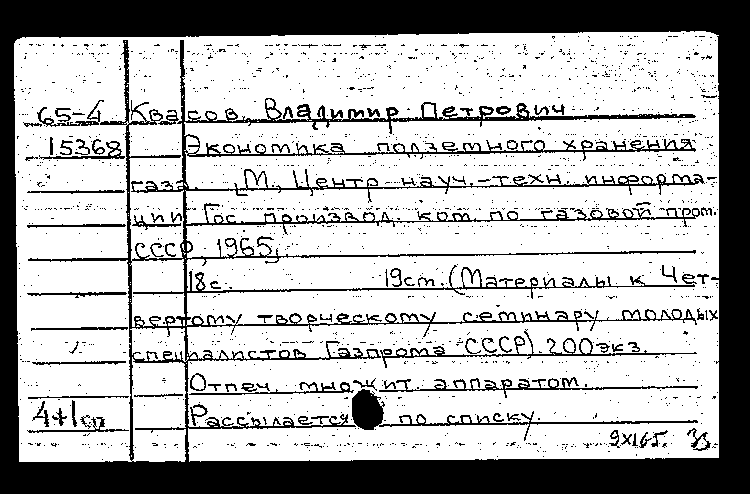 65-4 Квасов, Владимир Петрович
15368 Экономика подземного хранения
газа. [М., Центр науч.-техн. информа-
ции Гос. производ. ком. по газовой пром.
СССР, 1965].
18с. 19см. (Материалы к Чет-
вертому творческому семинару молодых
специалистов Газпрома СССР). 200экз.
Отпеч. множит. аппаратом.
4+1сп Рассылается по списку.
9XI65.